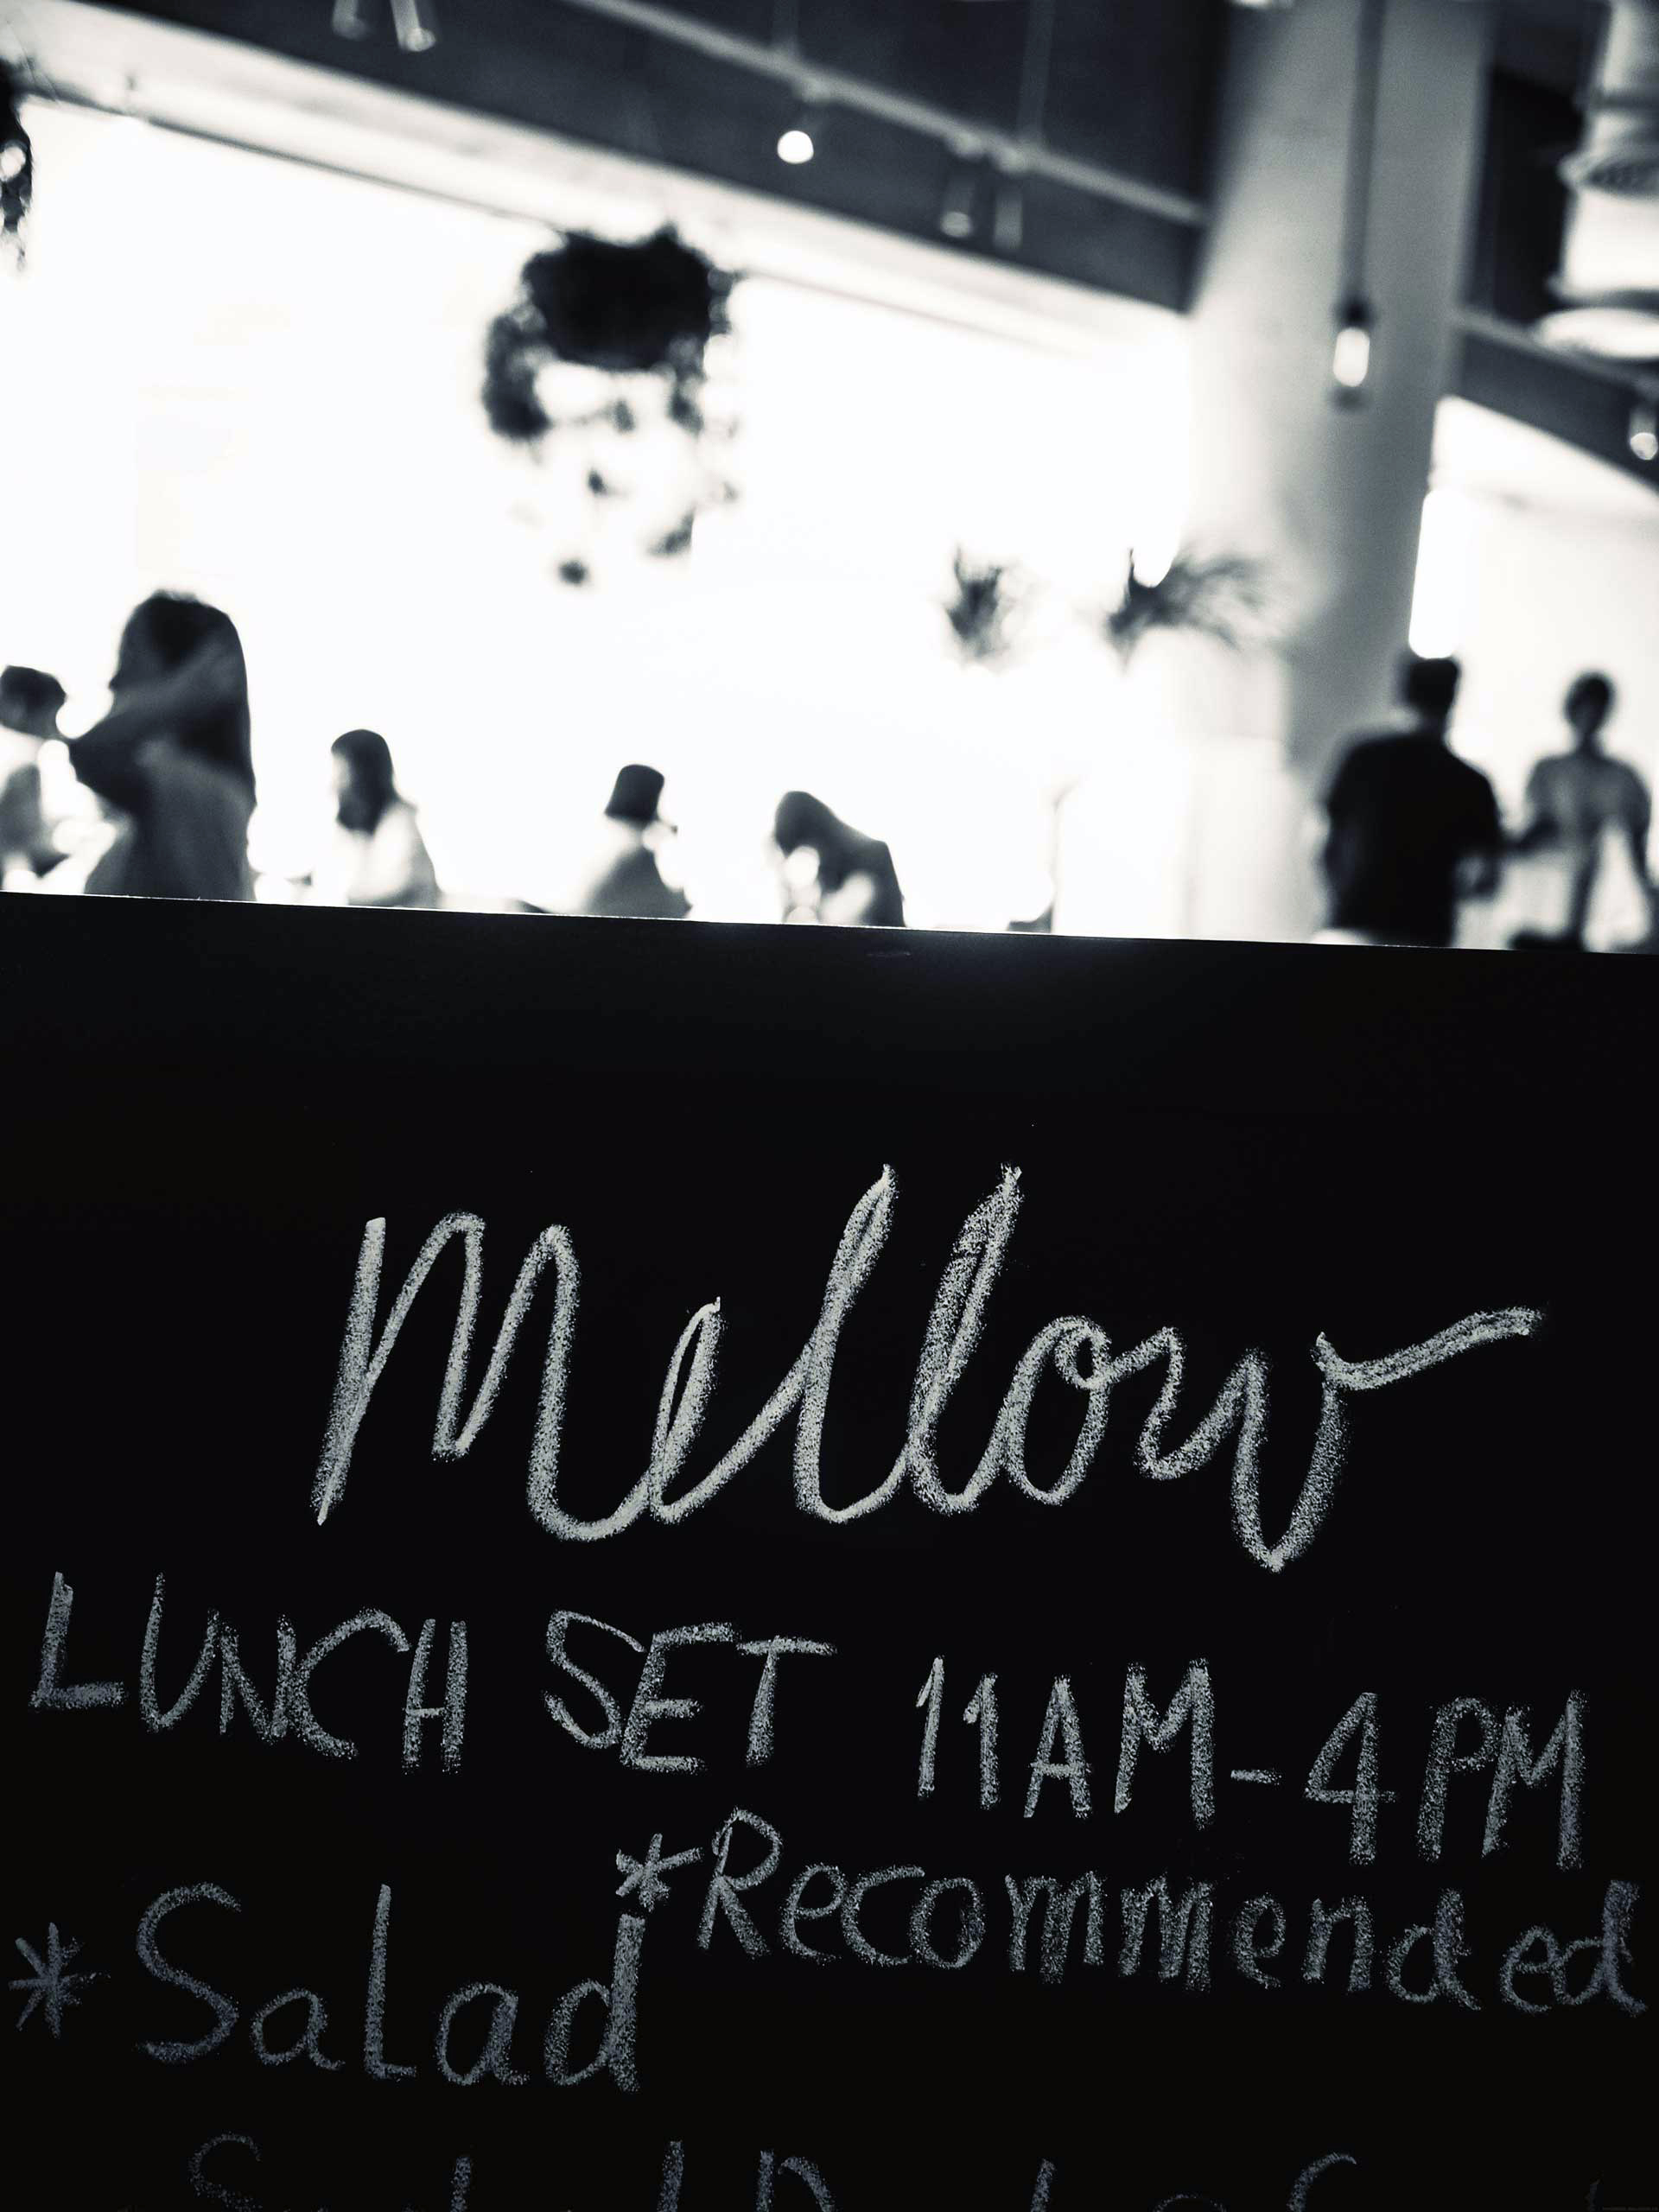 Mellow
LUNCH SET 11AM-4PM
*Recommended
*Salad